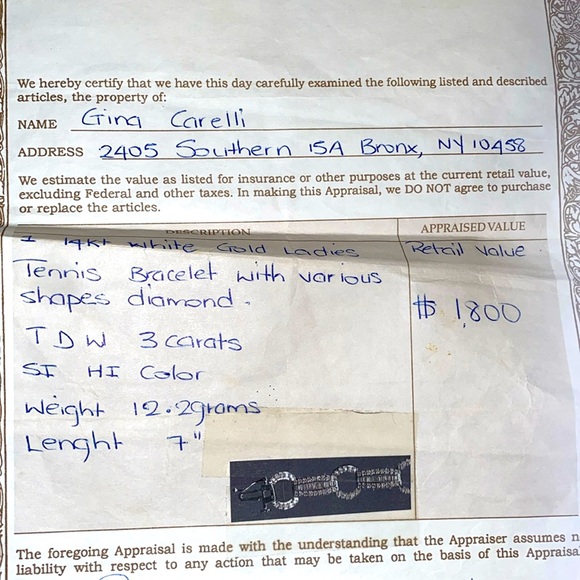 We hereby certify that we have this day carefully examined the following listed and described
articles, the property of:
NAME Gina Carelli
ADDRESS 2405 Southern 15A Bronx, NY 10458
We estimate the value as listed for insurance or other purposes at the current retail value,
excluding Federal and other taxes. In making this Appraisal, we DO NOT agree to purchase
or replace the articles.
DESCRIPTION APPRAISED VALUE
1 14kt White Gold Ladies Retail Value
Tennis Bracelet with various
shapes diamond. $ 1,800
TDW 3 carats
SI HI Color
Weight 12.2grams
Lenght 7"
The foregoing Appraisal is made with the understanding that the Appraiser assumes n
liability with respect to any action that may be taken on the basis of this Appraisa